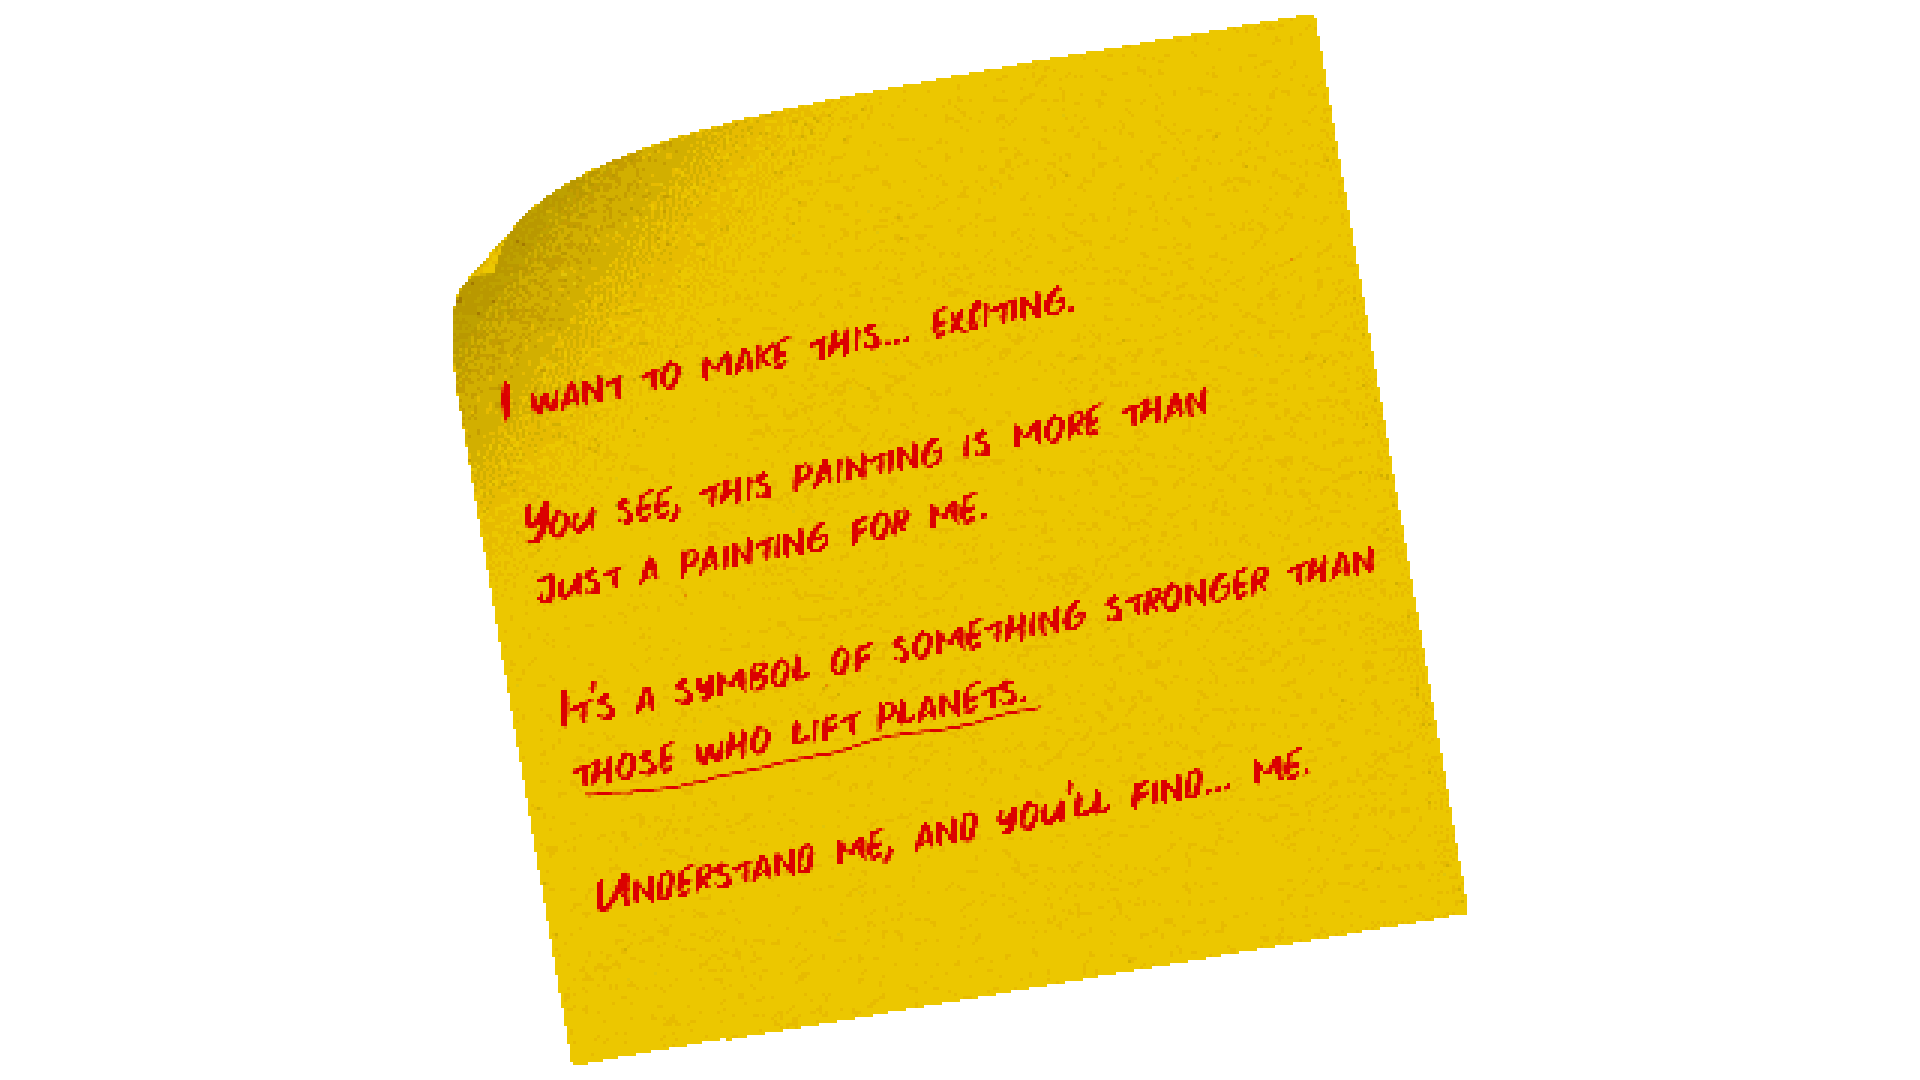 I want to make this... exciting.
You see, this painting is more than
just a painting for me.
It's a symbol of something stronger than
those who lift planets.
Understand me, and you'll find... me.